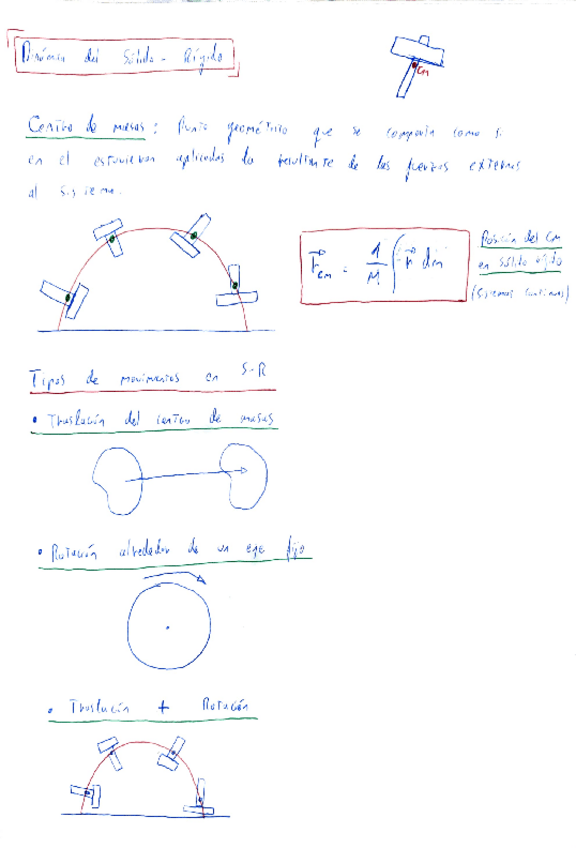 Dinámica del Sólido - Rígido
CM
Centro de masas: Punto geométrico que se comporta como si
en el estuvieran aplicadas la resultante de las fuerzas externas
al sistema.
r⃗cm = 1/M ∫ r⃗ dm
Posición del CM
en sólido rígido
(sistemas continuos)
Tipos de movimientos en S-R
• Traslación del centro de masas
• Rotación alrededor de un eje fijo
• Traslación + Rotación